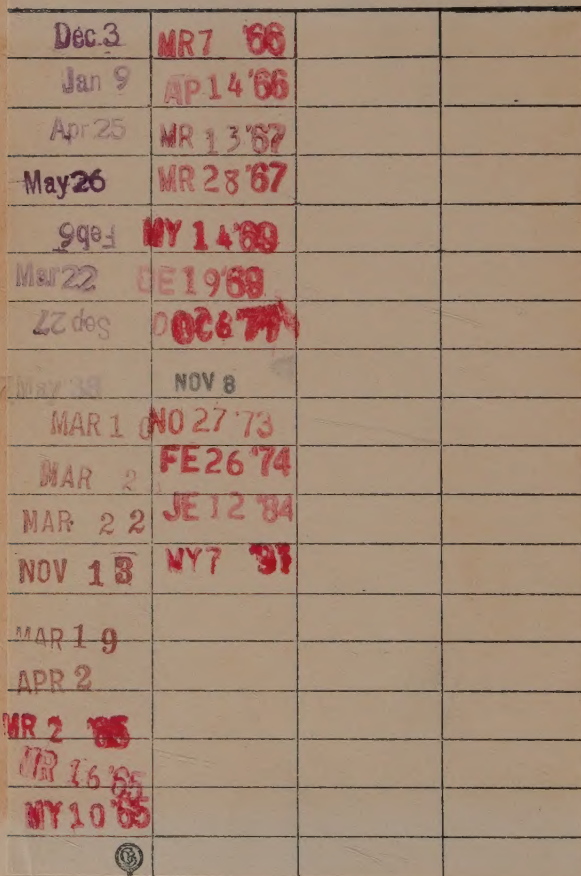 Dec.3
Jan 9
Apr 25
May 26
Feb 6
Mar 22
Sep 27
May
MAR 1
MAR 2
MAR 22
NOV 13
MAR 19
APR 2
MR 2 '65
MR 16 '65
MY 10 '65
MR 7 '66
AP 14 '66
MR 13 '67
MR 28 '67
MY 14 '69
DE 19 '69
OC 6
NOV 8
NO 27 '73
FE 26 '74
JE 12 '84
MY 7